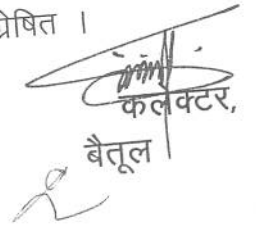 प्रेषित ।
कलेक्टर,
बैतूल